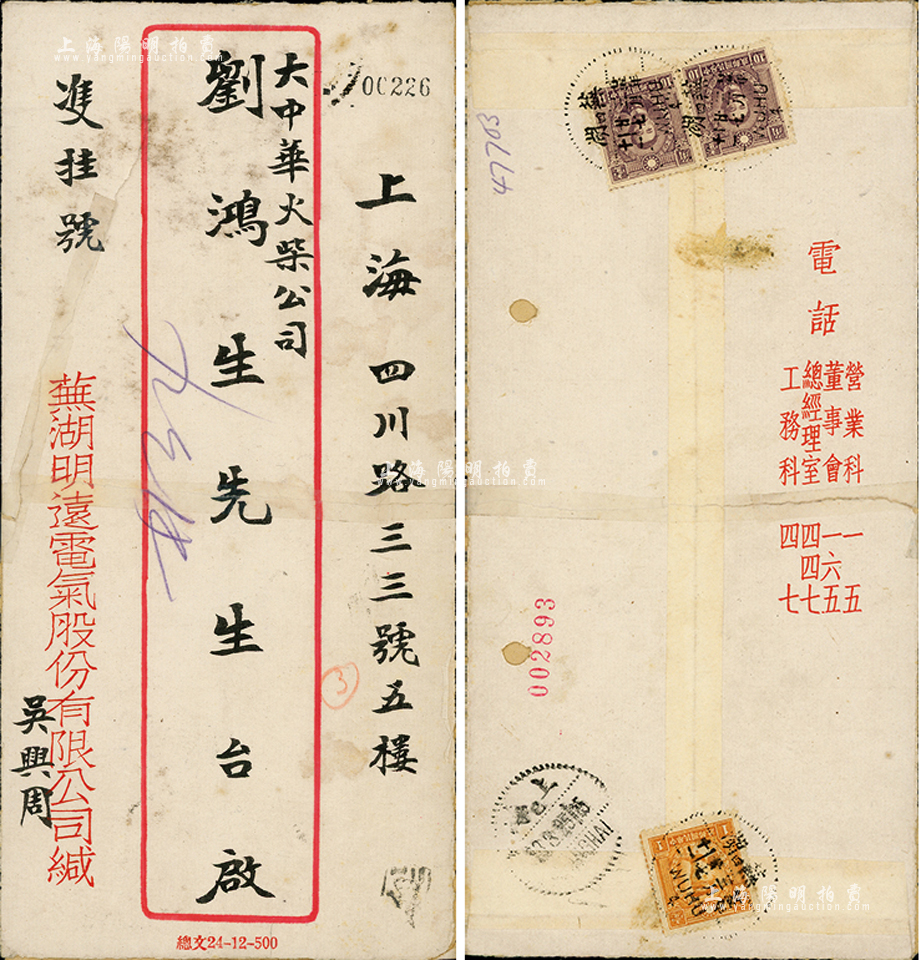 上海陽明拍賣
www.yangmingauction.com
00226
上海四川路三三號五樓
大中華火柴公司
劉鴻生先生台啟
雙挂號
蕪湖明遠電氣股份有限公司緘
吳興周
3
總文24-12-500
47703
WUHU
WUHU
電話
營業科 一五
董事會 一六五
總經理室 四四七
工務科 四七
上海陽明拍賣
www.yangmingauction.com
002893
上海
WUHU
上海陽明拍賣
www.yangmingauction.com